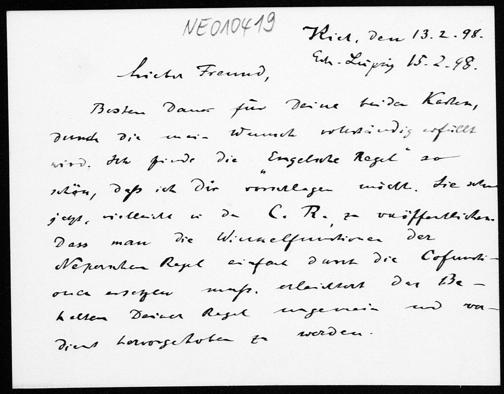 NE010419
Kiel, den 13.2.98.
Erh. Leipzig 15.2.98.
Lieber Freund,
Besten Dank für Deine beiden Karten,
durch die mein Wunsch vollständig erfüllt
wird. Ich finde die "Engelsche Regel" so
schön, daß ich Dir vorschlagen möcht. Sie schon
jetzt, vielleicht in den C. R., zu veröffentlichen.
Dass man die Winkelfunktionen der
Neperschen Regel einfach durch die Cofuncti-
onen ersetzen muß, erleichtert das Be-
halten Deiner Regel ungemein und ver-
dient hervorgehoben zu werden.